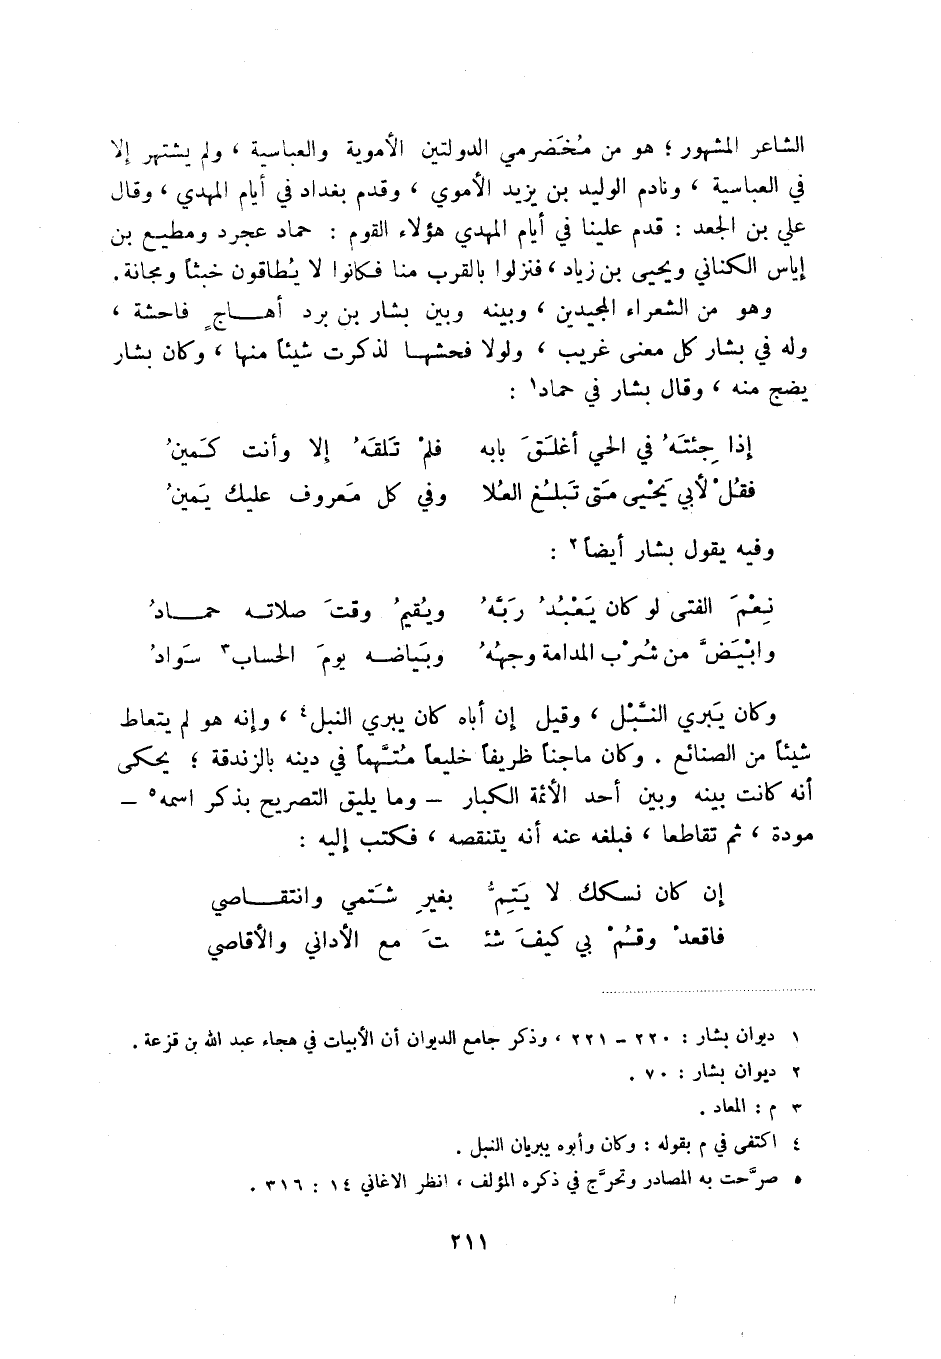 الشاعر المشهور ؛ هو من مُخَضرمي الدولتين الأموية والعباسية ، ولم يشتهر إلا
في العباسية ، ونادم الوليد بن يزيد الأموي ، وقدم بغداد في أيام المهدي ، وقال
علي بن الجعد : قدم علينا في أيام المهدي هؤلاء القوم : حماد عجرد ومطيع بن
إياس الكناني ويحيى بن زياد ، فنزلوا بالقرب منا فكانوا لا يُطاقون خبثاً ومجانة .
وهو من الشعراء المجيدين ، وبينه وبين بشار بن برد أهاجٍ فاحشة ،
وله في بشار كل معنى غريب ، ولولا فحشها لذكرت شيئاً منها ، وكان بشار
يضج منه ، وقال بشار في حماد١ :
إذا جِئتَهُ في الحي أغلَقَ بابه فلمْ تَلقَهُ إلا وأنت كَمينُ
فقُلْ لأبي يَحْيى متى تَبلُغ العُلا وفي كل مَعروف عليك يَمينُ
وفيه يقول بشار أيضاً٢ :
نِعْمَ الفتى لو كان يَعْبُدُ رَبَّهُ ويُقيمُ وقتَ صلاته حمادُ
وابْيَضَّ من شُرْب المدامة وجهُهُ وبَياضه يومَ الحساب٣ سَوادُ
وكان يَبري النَّبْل ، وقيل إن أباه كان يبري النبل٤ ، وإنه هو لم يتعاط
شيئاً من الصنائع . وكان ماجناً ظريفاً خليعاً مُتَّهماً في دينه بالزندقة ؛ يحكى
أنه كانت بينه وبين أحد الأئمة الكبار – وما يليق التصريح بذكر اسمه٥ –
مودة ، ثم تقاطعا ، فبلغه عنه أنه يتنقصه ، فكتب إليه :
إن كان نسكك لا يَتِمُّ بغيرِ شَتمي وانتقاصي
فاقعدْ وقُمْ بي كيفَ شئـ ـتَ مع الأداني والأقاصي
١ ديوان بشار : ٢٢٠ – ٢٢١ ، وذكر جامع الديوان أن الأبيات في هجاء عبد الله بن قزعة .
٢ ديوان بشار : ٧٠ .
٣ م : المعاد .
٤ اكتفى في م بقوله : وكان وأبوه يبريان النبل .
٥ صرَّحت به المصادر وتحرَّج في ذكره المؤلف ، انظر الاغاني ١٤ : ٣١٦ .
٢١١